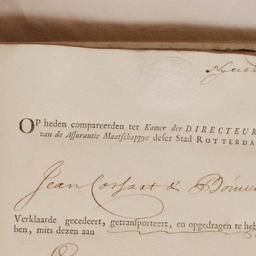 OP heden compareerden ter Kamer der DIRECTEUR
van de Assurantie Maatschappye deser Stad ROTTERDA
Jean Corsart &
Verklaarde gecedeert, getransporteert, en opgedragen te heb
ben, mits dezen aan